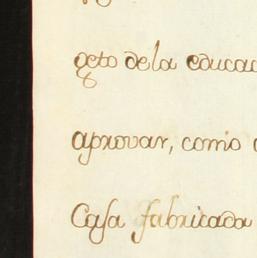 geto de la educac
aprovar, como
Casa fabricada